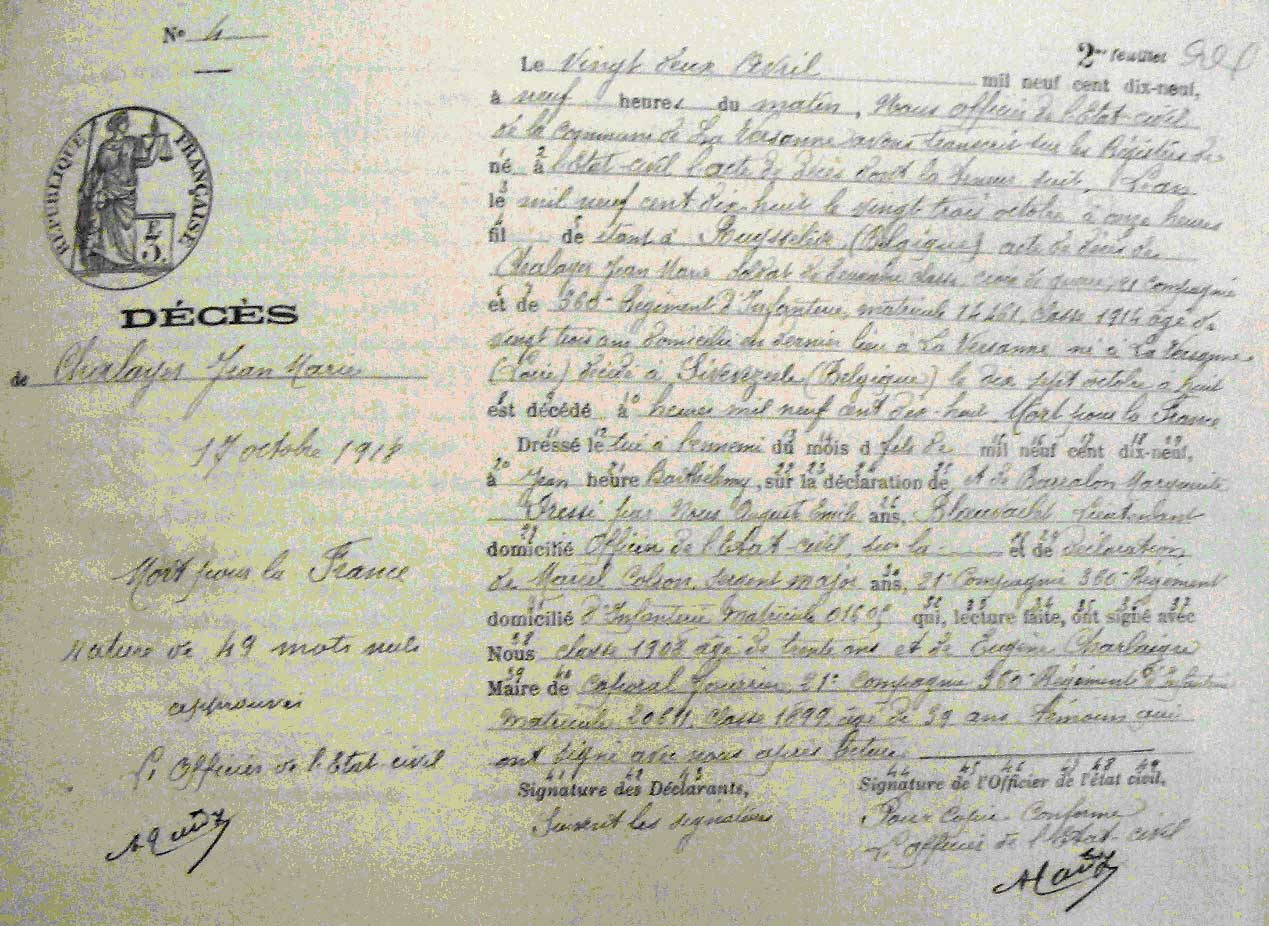 N° 4
2me feuillet
RÉPUBLIQUE FRANÇAISE
E 3.
DÉCÈS
de Chalayer Jean Marie
17 octobre 1918
Mort pour la France
Rature de 49 mots nuls
approuvés
L'Officier de l'Etat-civil
Le Vingt deux Avril mil neuf cent dix-neuf,
à neuf heures du matin, Nous officier de l'Etat-civil
de la commune de La Versanne avons transcrit sur les Régistres de
né à 2 l'Etat-civil l'acte de décès dont la teneur suit. L'an
le 3 mil neuf cent dix-huit le vingt trois octobre à onze heures
fil 4 de 5 étant à Ruysselede (Belgique) acte de décès de
Chalayer Jean Marie soldat de deuxième classe, croix de guerre, 21 Compagnie
et de 360e Régiment d'Infanterie, matricule 14261, classe 1914 âgé de
vingt trois ans domicilié en dernier lieu à La Versanne né à La Versanne
(Loire) décédé à (Belgique) le dix sept octobre à huit
est décédé à heures mil neuf cent dix-huit. Mort pour la France
Dressé le tué à l'ennemi du mois d fils de mil neuf cent dix-neuf,
à Jean heure Barthélemy, sur la déclaration de et de Bassalon Marguerite
Dressé par Nous Auguste Emile ans, Lieutenant
domicilié Officier de l'Etat-civil, sur la et de déclaration
de Marcel Colson, sergent major ans, 21e Compagnie 360e Régiment
domicilié d'Infanterie Matricule qui, lecture faite, ont signé avec
Nous classe 1908 âgé de trente ans et de Eugène Charlaigre
Maire de Caporal fourrier, 21e Compagnie 360e Régiment d'Infanterie
Matricule 20611, classe 1899, âgé de 39 ans. témoins qui
ont signé avec nous après lecture.
Signature des Déclarants,
Signature de l'Officier de l'état civil,
Suivent les signatures
Pour Copie Conforme
L'Officier de l'Etat-civil